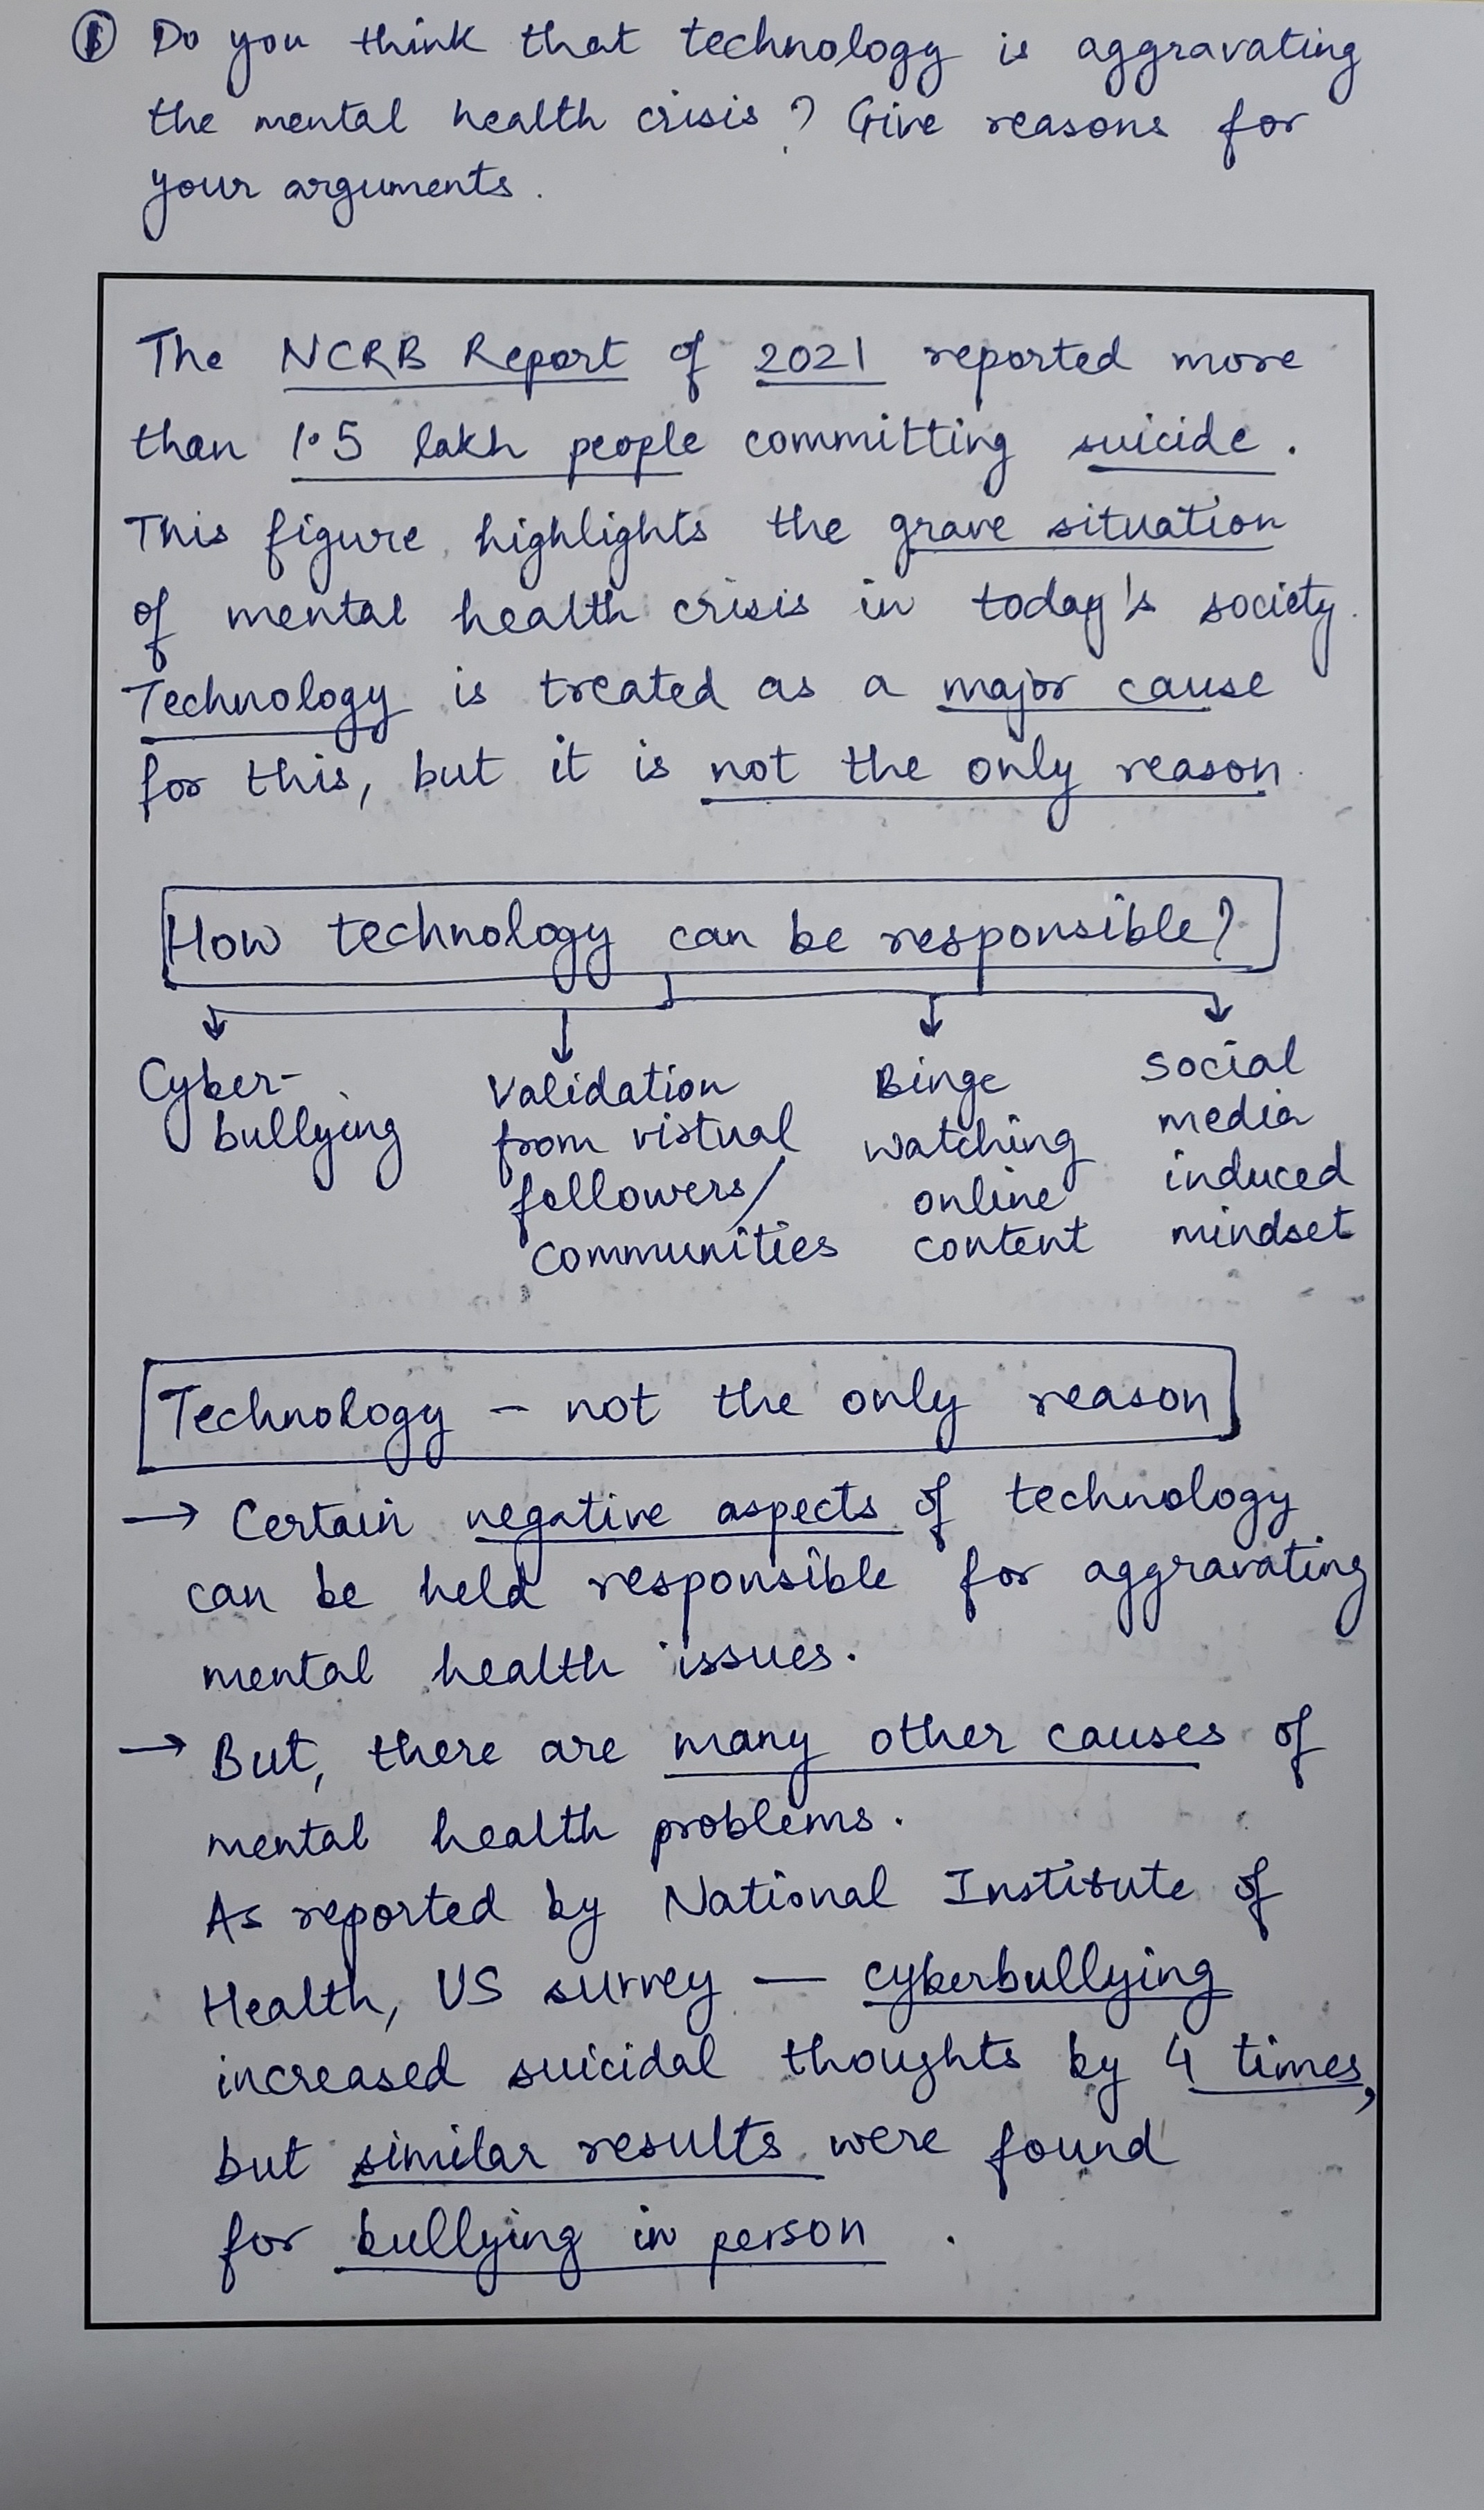 ① Do you think that technology is aggravating
the mental health crisis? Give reasons for
your arguments.
The NCRB Report of 2021 reported more
than 1.5 lakh people committing suicide.
This figure highlights the grave situation
of mental health crisis in today's society.
Technology is treated as a major cause
for this, but it is not the only reason.
How technology can be responsible?
Cyber-
bullying
Validation
from virtual
followers/
communities
Binge
watching
online
content
Social
media
induced
mindset
Technology - not the only reason
→ Certain negative aspects of technology
can be held responsible for aggravating
mental health issues.
→ But, there are many other causes of
mental health problems.
As reported by National Institute of
Health, US survey — cyberbullying
increased suicidal thoughts by 4 times,
but similar results were found
for bullying in person.